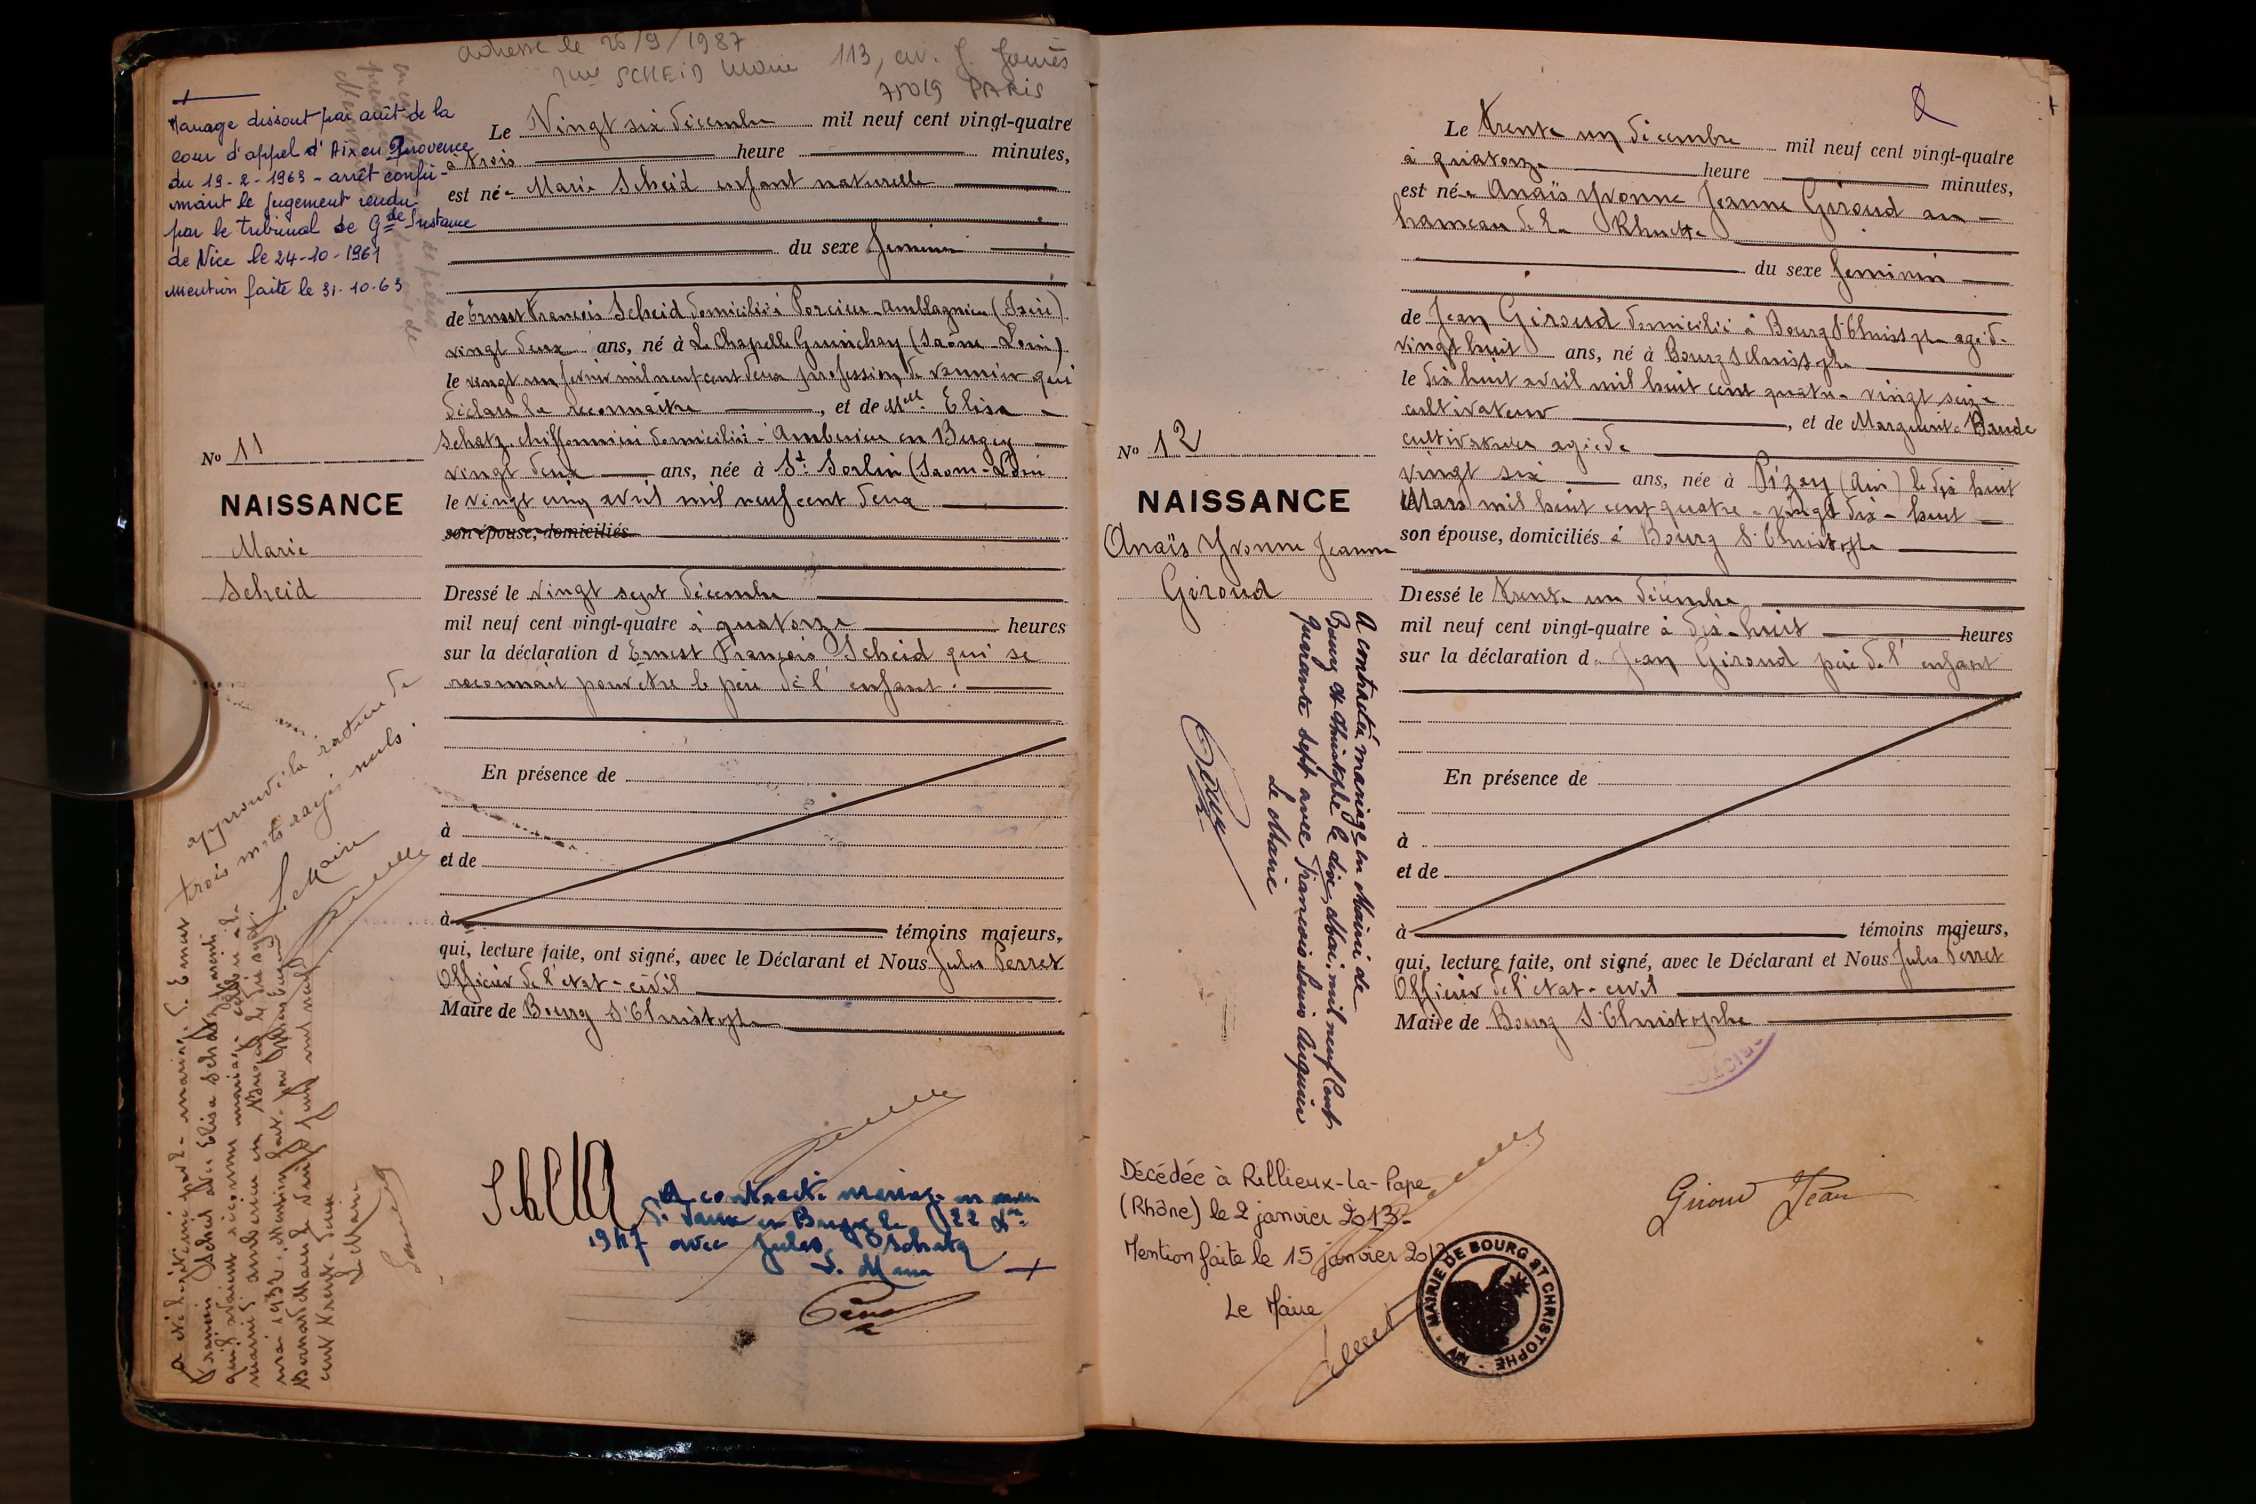 adresse le 26/9/1987
Mme SCHEID Marie 113, av. J. Jaurès
75019 PARIS
Mariage dissout par arrêt de la
cour d'appel d'Aix en Provence
du 19-2-1963 - arrêt confir-
mant le jugement rendu
par le tribunal de Gde Instance
de Nice le 24-10-1961
Mention faite le 31-10-63
No 11
NAISSANCE
Marie
Scheid
Le Vingt six décembre mil neuf cent vingt-quatre
à trois heure minutes,
est née Marie Scheid enfant naturelle
du sexe féminin
de Ernest François Scheid domicilié à Porcieu-Amblagnieu (Isère)
vingt deux ans, né à La Chapelle Guinchay (Saône-Loire)
le vingt un février mil neuf cent deux profession de vannier qui
déclare la reconnaître, et de Melle Elisa
Schatz chiffonnière domiciliée Ambérieu en Bugey
vingt deux ans, née à St Sorlin (Saône-Loire
le vingt cinq avril mil neuf cent deux
son épouse, domiciliés
Dressé le vingt sept décembre
mil neuf cent vingt-quatre à quatorze heures
sur la déclaration d Ernest François Scheid qui se
reconnait pour être le père de l'enfant.
En présence de
à
et de
à témoins majeurs,
qui, lecture faite, ont signé, avec le Déclarant et Nous Jules Perret
Officier de l'état-civil
Maire de Bourg St Christophe
approuvé la rature de
trois mots rayés nuls.
Le Maire
a été légitimé par le mariage d'Ernest
François Scheid avec Elisa Schatz
mai 1932
cent trente deux
Le Maire
A contracté mariage en mairie
de Vaux en Bugey le 22
1947 avec Jules Schatz
Le Maire
No 12
NAISSANCE
Anaïs Yvonne Jeanne
Giroud
Le trente un décembre mil neuf cent vingt-quatre
à quatorze heure minutes,
est née Anaïs Yvonne Jeanne Giroud au
hameau de la
du sexe féminin
de Jean Giroud domicilié à Bourg St Christophe agé de
vingt huit ans, né à Bourg St Christophe
le dix huit avril mil huit cent quatre-vingt seize
cultivateur, et de Marguerite Baude
cultivatrice agée de
vingt six ans, née à Pizay (Ain) le dix huit
le Mars mil huit cent quatre-vingt dix-huit
son épouse, domiciliés à Bourg St Christophe
Dressé le trente un décembre
mil neuf cent vingt-quatre à dix-huit heures
sur la déclaration de Jean Giroud père de l'enfant
En présence de
à
et de
à témoins majeurs,
qui, lecture faite, ont signé, avec le Déclarant et Nous Jules Perret
Officier de l'état-civil
Maire de Bourg St Christophe
A contracté mariage en Mairie de
Bourg St Christophe le dix Mai, mil neuf cent
quarante sept avec François
Le Maire
Décédée à Rillieux-La-Pape
(Rhône) le 2 janvier 2013-
Mention faite le 15 janvier 2013
Le Maire
MAIRIE DE BOURG ST CHRISTOPHE
Giroud Jean